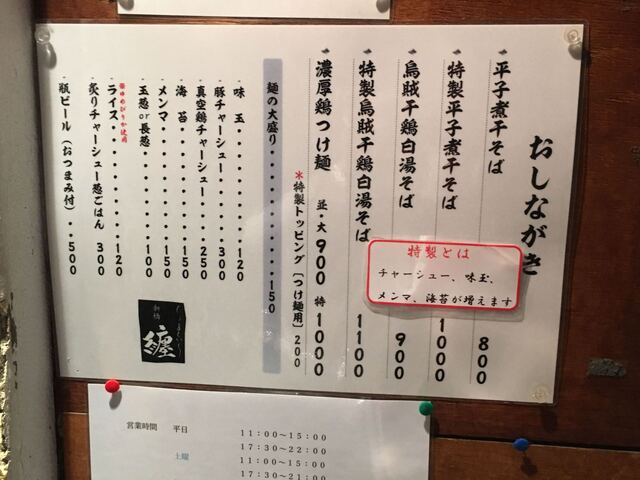 おしながき
・平子煮干そば・・・・・・・・８００
・特製平子煮干そば・・・・・１０００
・烏賊干鶏白湯そば・・・・・９００
・特製烏賊干鶏白湯そば　１１００
・濃厚鶏つけ麺　並・大　９００　特　１０００
＊特製トッピング〔つけ麺用〕２００
特製とは
チャーシュー、味玉、
メンマ、海苔が増えます
麺の大盛り・・・・・・・・・１５０
・味　玉・・・・・・・・・・１２０
・豚チャーシュー・・・・・・３００
・真空鶏チャーシュー・・・・２５０
・海　苔・・・・・・・・・・１５０
・メンマ・・・・・・・・・・１５０
・玉葱ｏｒ長葱・・・・・・・１００
※ゆめぴりか使用
・ライス・・・・・・・・・・１２０
・炙りチャーシュー葱ごはん　３００
・瓶ビール（おつまみ付）・・５００
新橋
纏
営業時間　平日　１１：００～１５：００
１７：３０～２２：００
土曜　１１：００～１５：００
１７：３０～２１：００